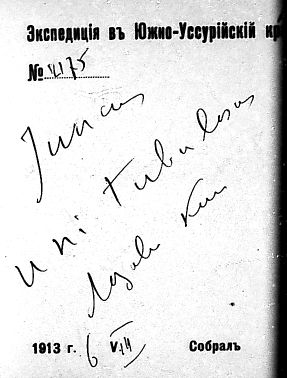 Экспедиція въ Южно-Уссурійскій
№ 4175
Juncus
uni tubulosus
1913 г. 6 VII Собралъ